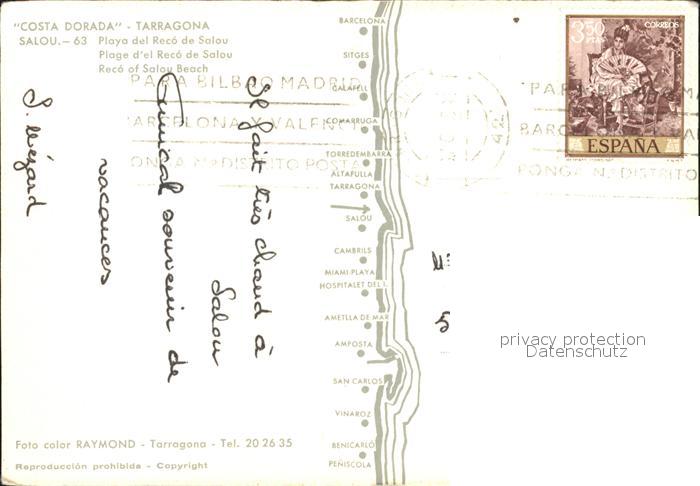 "COSTA DORADA" - TARRAGONA
SALOU. – 63 Playa del Recó de Salou
Plage d'el Recó de Salou
Recó of Salou Beach
PARA BILBAO MADRID
BARCELONA Y VALENCIA
PONGA Nº DISTRITO POSTAL
Il fait très chaud à
Salou
Amical souvenir de
vacances
BARCELONA
SITGES
CALAFELL
COMARRUGA
TORREDEMBARRA
ALTAFULLA
TARRAGONA
SALOU
CAMBRILS
MIAMI PLAYA
HOSPITALET DEL I.
AMETLLA DE MAR
AMPOSTA
SAN CARLOS
VINAROZ
BENICARLÓ
PEÑISCOLA
3,50
PTAS
CORREOS
ESPAÑA
PARA
BARCE
PONGA Nº DISTRITO
privacy protection
Datenschutz
Foto color RAYMOND - Tarragona - Tel. 20 26 35
Reproducción prohibida - Copyright